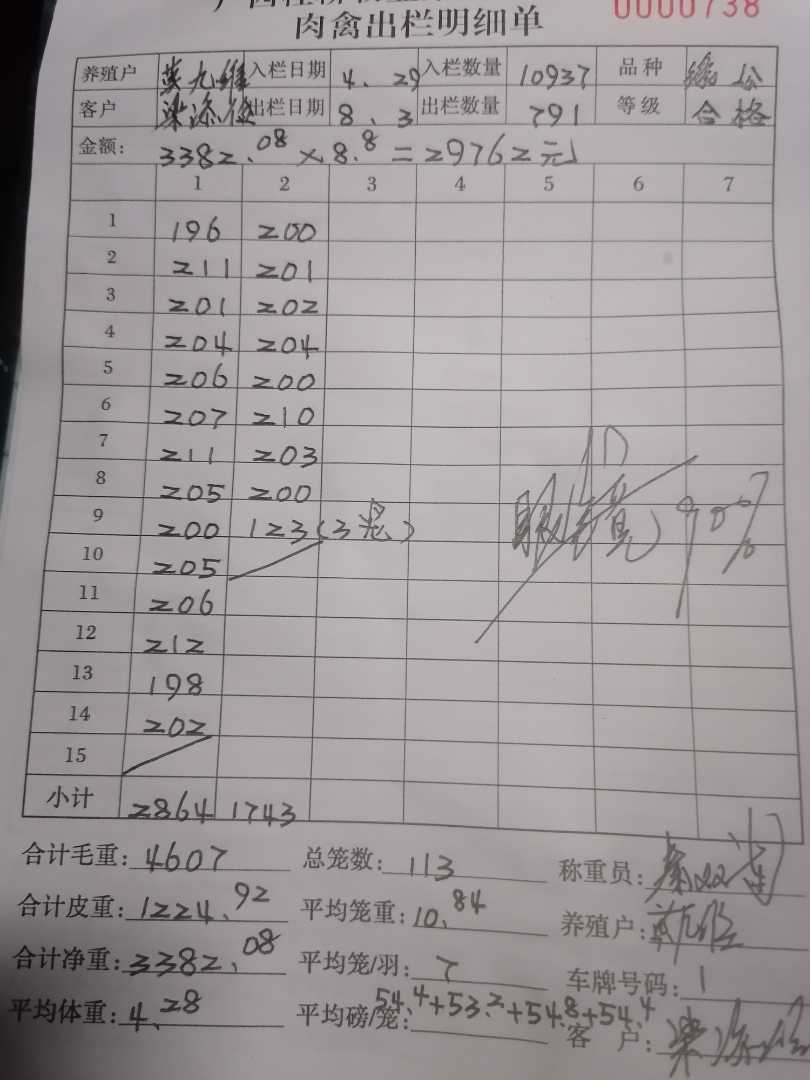 0000738
肉禽出栏明细单
养殖户 黄九维 入栏日期 4.29 入栏数量 10937 品种
客户 出栏日期 8.3 出栏数量 791 等级 合格
金额: 3382.08×8.8=29762元
1 2 3 4 5 6 7
1 196 200
2 211 201
3 201 202
4 204 204
5 206 200
6 207 210
7 211 203
8 205 200
9 200 123(3笼)
10 205
11 206
12 212
13 198
14 202
15
90%
小计 2864 1743
合计毛重: 4607 总笼数: 113 称重员:
合计皮重: 1224.92 平均笼重: 10.84 养殖户:
合计净重: 3382.08 平均笼/羽: 7 车牌号码: 1
平均体重: 4.28 平均磅/笼: 54.4+53.2+54.8+54.4 客户: